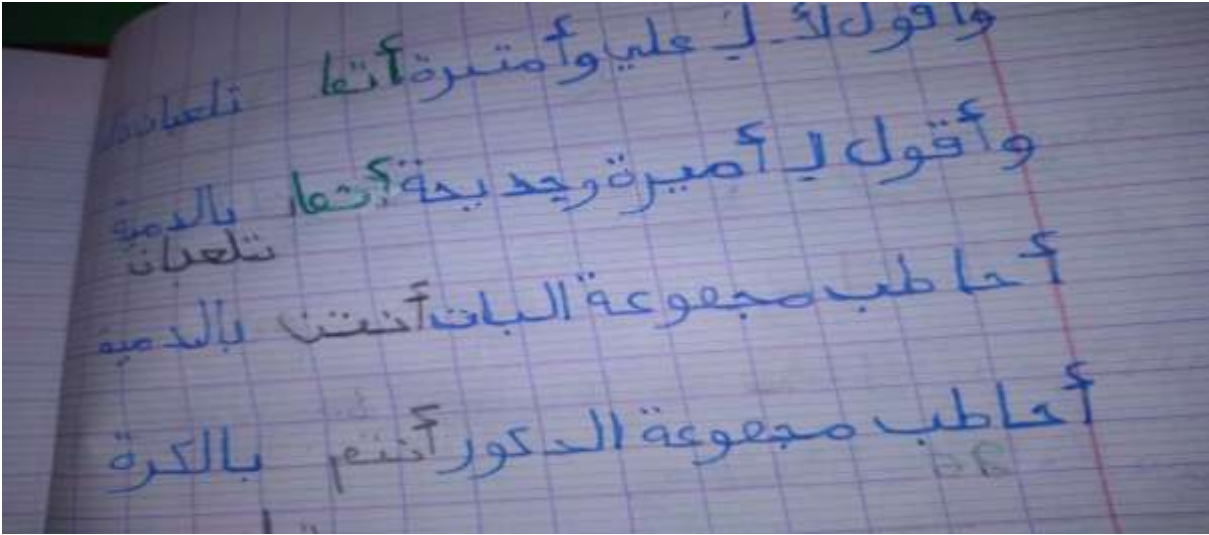 وأقول لـ علي وأميرة أنتما تلعبان
وأقول لـ أميرة وخديجة أنتما بالدمية
تلعبان
أخاطب مجموعة البنات أنتن بالدمية
أخاطب مجموعة الذكور أنتم بالكرة